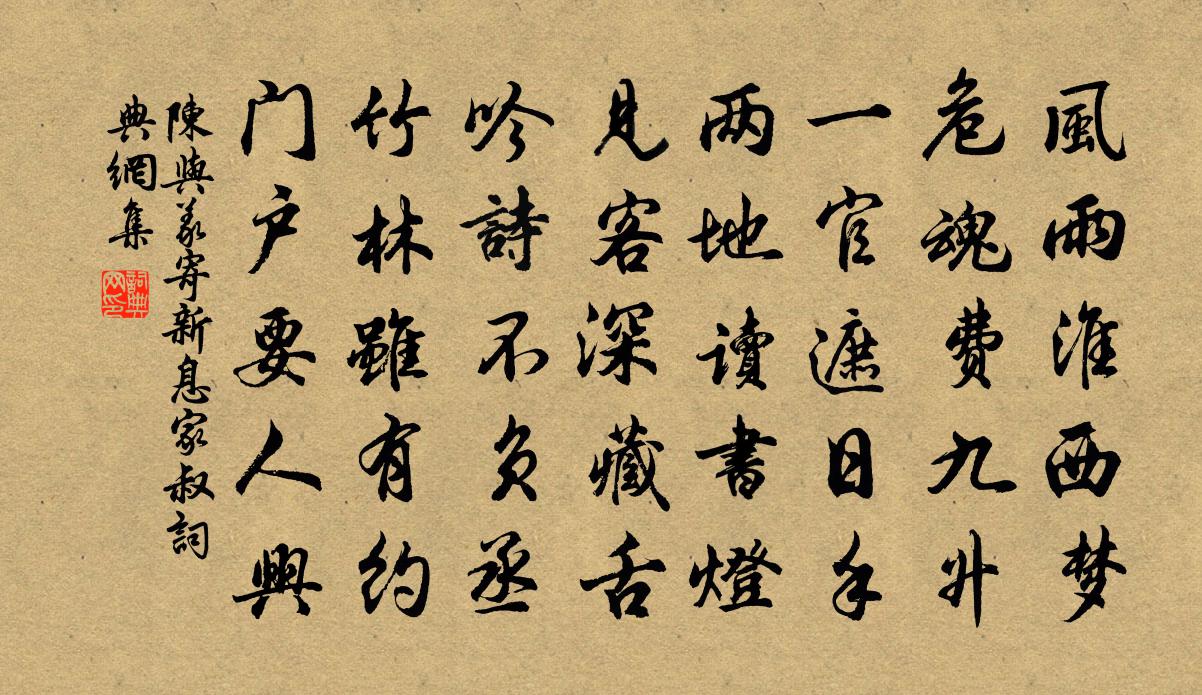 風雨淮西梦
危魂費九升
一官遮日手
两地讀書燈
見客深藏舌
吟詩不負丞
竹林雖有約
门户要人興
陳與義寄新息家叔詞
典網集
詞典
网印